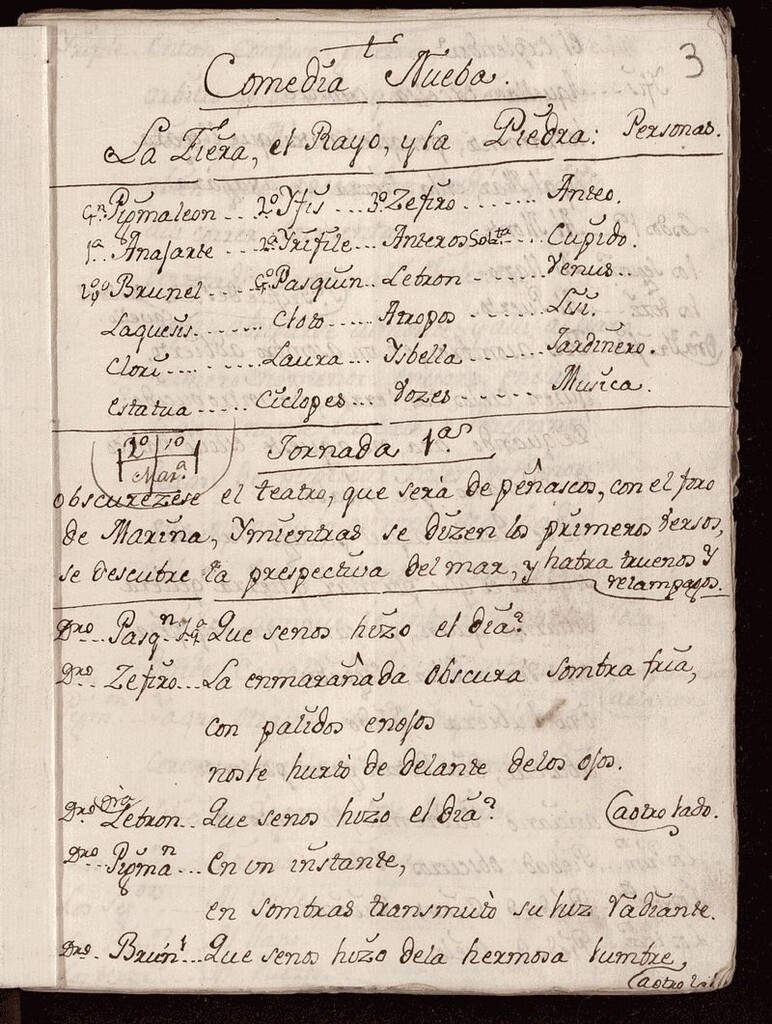 3
Comedia Nueba.
La Fiera, el Rayo, y la Piedra: Personas.
Gn Pigmaleon ... 2º Yfis ... 3º Zefiro ... Anteo.
1ª Anajarte ... 2ª Yrifile ... Anteros ... Cupido.
Brunel ... Pasquin ... Lebron ... Venus.
Laquesis ... Cloto ... Atropos ... Lisi.
Clori ... Laura ... Ysbella ... Jardinero.
estatua ... Ciclopes ... Vozes ... Musica.
2º 1º
Marª
Jornada 1ª
obscurezese el teatro, que será de peñascos, con el foro
de Marina, Y mientras se dizen los primeros versos,
se descubre la prespectiva del mar, y habrá truenos Y
relampagos.
Dro Pasqn Que senos hizo el dia?
Dro Zefiro... La enmarañada obscura sombra fria,
con palidos enojos
noste hurtò de delante delos ojos.
Dro Lebron.. Que senos hizo el dia? (a otro lado.
Dro Pigman... en un instante,
en sombras transmutò su luz radiante.
Dro Brunl... Que senos hizo dela hermosa lumbre,
(a otro